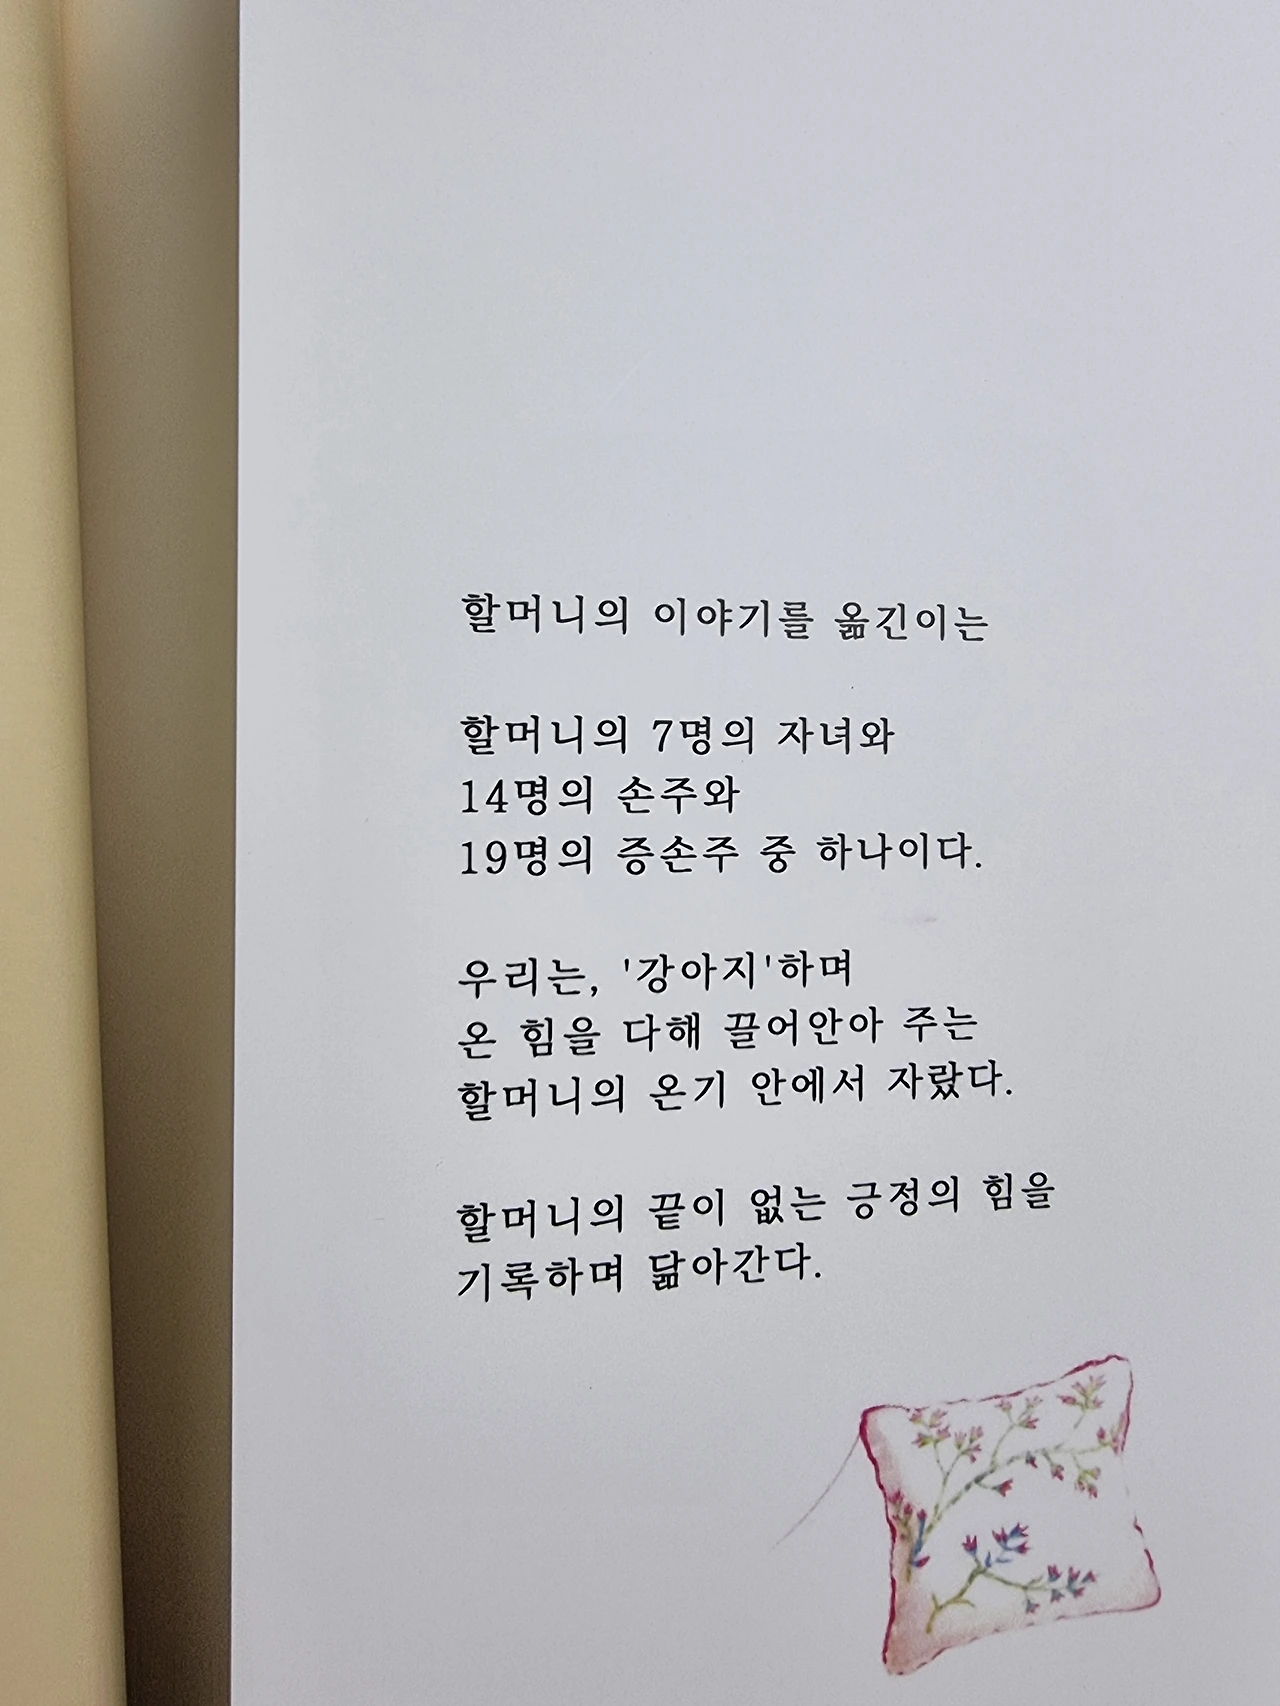 할머니의 이야기를 옮긴이는
할머니의 7명의 자녀와
14명의 손주와
19명의 증손주 중 하나이다.
우리는, '강아지'하며
온 힘을 다해 끌어안아 주는
할머니의 온기 안에서 자랐다.
할머니의 끝이 없는 긍정의 힘을
기록하며 닮아간다.